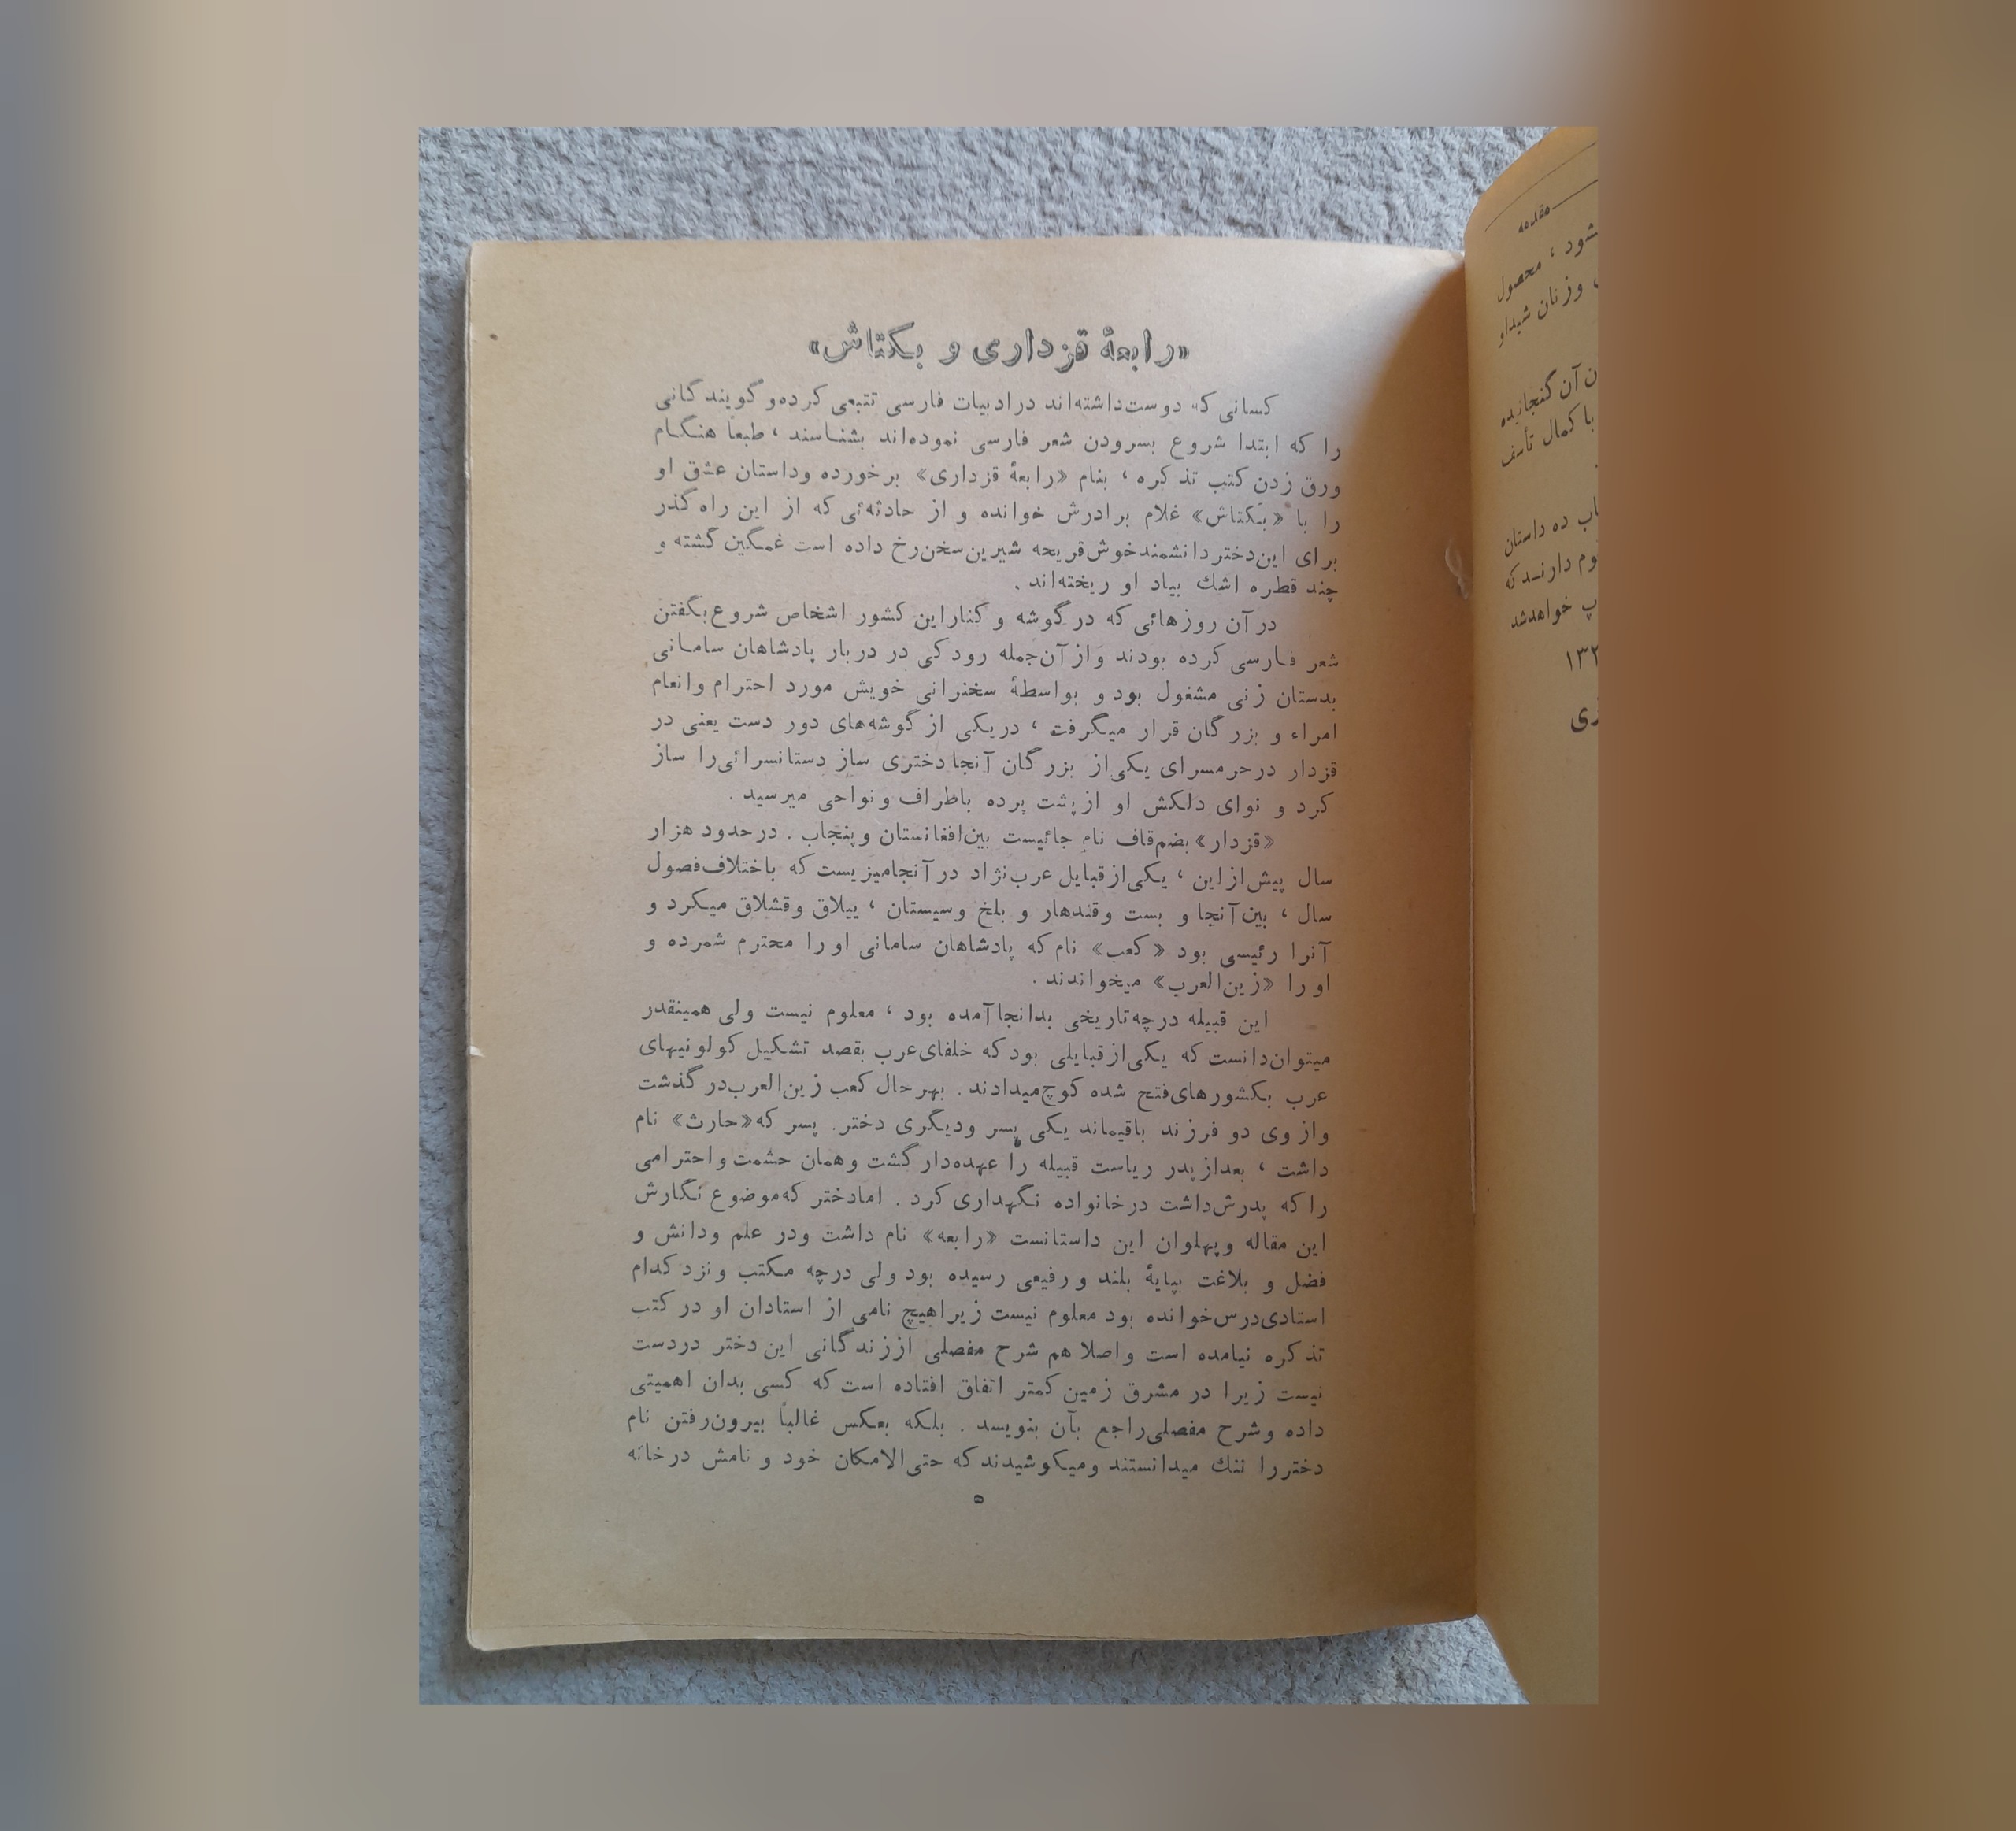 «رابعهٔ قزداری و بکتاش»
کسانی که دوست‌داشته‌اند در ادبیات فارسی تتبعی کرده و گویندگانی
را که ابتدا شروع بسرودن شعر فارسی نموده‌اند بشناسند ، طبعاً هنگام
ورق زدن کتب تذکره ، بنام «رابعهٔ قزداری» برخورده وداستان عشق او
را با «بکتاش» غلام برادرش خوانده و از حادثه‌ئی که از این راه گذر
برای این‌دختر دانشمند خوش‌قریحه شیرین‌سخن‌رخ داده است غمگین گشته و
چند قطره اشك بیاد او ریخته‌اند .
در آن روزهائی که در گوشه و کنار این کشور اشخاص شروع بگفتن
شعر فارسی کرده بودند و از آن‌جمله رودکی در دربار پادشاهان سامانی
بدستان زنی مشغول بود و بواسطهٔ سخنرانی خویش مورد احترام وانعام
امراء و بزرگان قرار میگرفت ، در یکی از گوشه‌های دور دست یعنی در
قزدار در حرمسرای یکی از بزرگان آنجا دختری ساز دستانسرائی را ساز
کرد و نوای دلکش او از پشت پرده باطراف و نواحی میرسید .
«قزدار» بضم‌قاف نام جائیست بین‌افغانستان و پنجاب . در حدود هزار
سال پیش از این ، یکی از قبایل عرب‌نژاد در آنجا میزیست که باختلاف فصول
سال ، بین آنجا و بست وقندهار و بلخ وسیستان ، ییلاق وقشلاق میکرد و
آنرا رئیسی بود «کعب» نام که پادشاهان سامانی او را محترم شمرده و
او را «زین‌العرب» میخواندند .
این قبیله در چه تاریخی بدانجا آمده بود ، معلوم نیست ولی همینقدر
میتوان‌دانست که یکی از قبایلی بود که خلفای عرب بقصد تشکیل کولونیهای
عرب بکشورهای فتح شده کوچ میدادند . بهر حال کعب زین‌العرب در گذشت
واز وی دو فرزند باقیماند یکی پسر ودیگری دختر. پسر که «حارث» نام
داشت ، بعد از پدر ریاست قبیله را عهده‌دار گشت وهمان حشمت و احترامی
را که پدرش‌داشت در خانواده نگهداری کرد . اما دختر که موضوع نگارش
این مقاله وپهلوان این داستانست «رابعه» نام داشت ودر علم ودانش و
فضل و بلاغت بپایهٔ بلند و رفیعی رسیده بود ولی در چه مکتب و نزد کدام
استادی درس‌خوانده بود معلوم نیست زیرا هیچ نامی از استادان او در کتب
تذکره نیامده است و اصلا هم شرح مفصلی از زندگانی این دختر در دست
نیست زیرا در مشرق زمین کمتر اتفاق افتاده است که کسی بدان اهمیتی
داده وشرح مفصلی راجع بآن بنویسد . بلکه بعکس غالباً بیرون‌رفتن نام
دختر را ننك میدانستند ومیکوشیدند که حتی‌الامکان خود و نامش در خانه
۵
مقدمه
شود ، محصول
وزنان شیداو
آن گنجانیده
با کمال تأسف
ده داستان
دارند که
خواهدشد